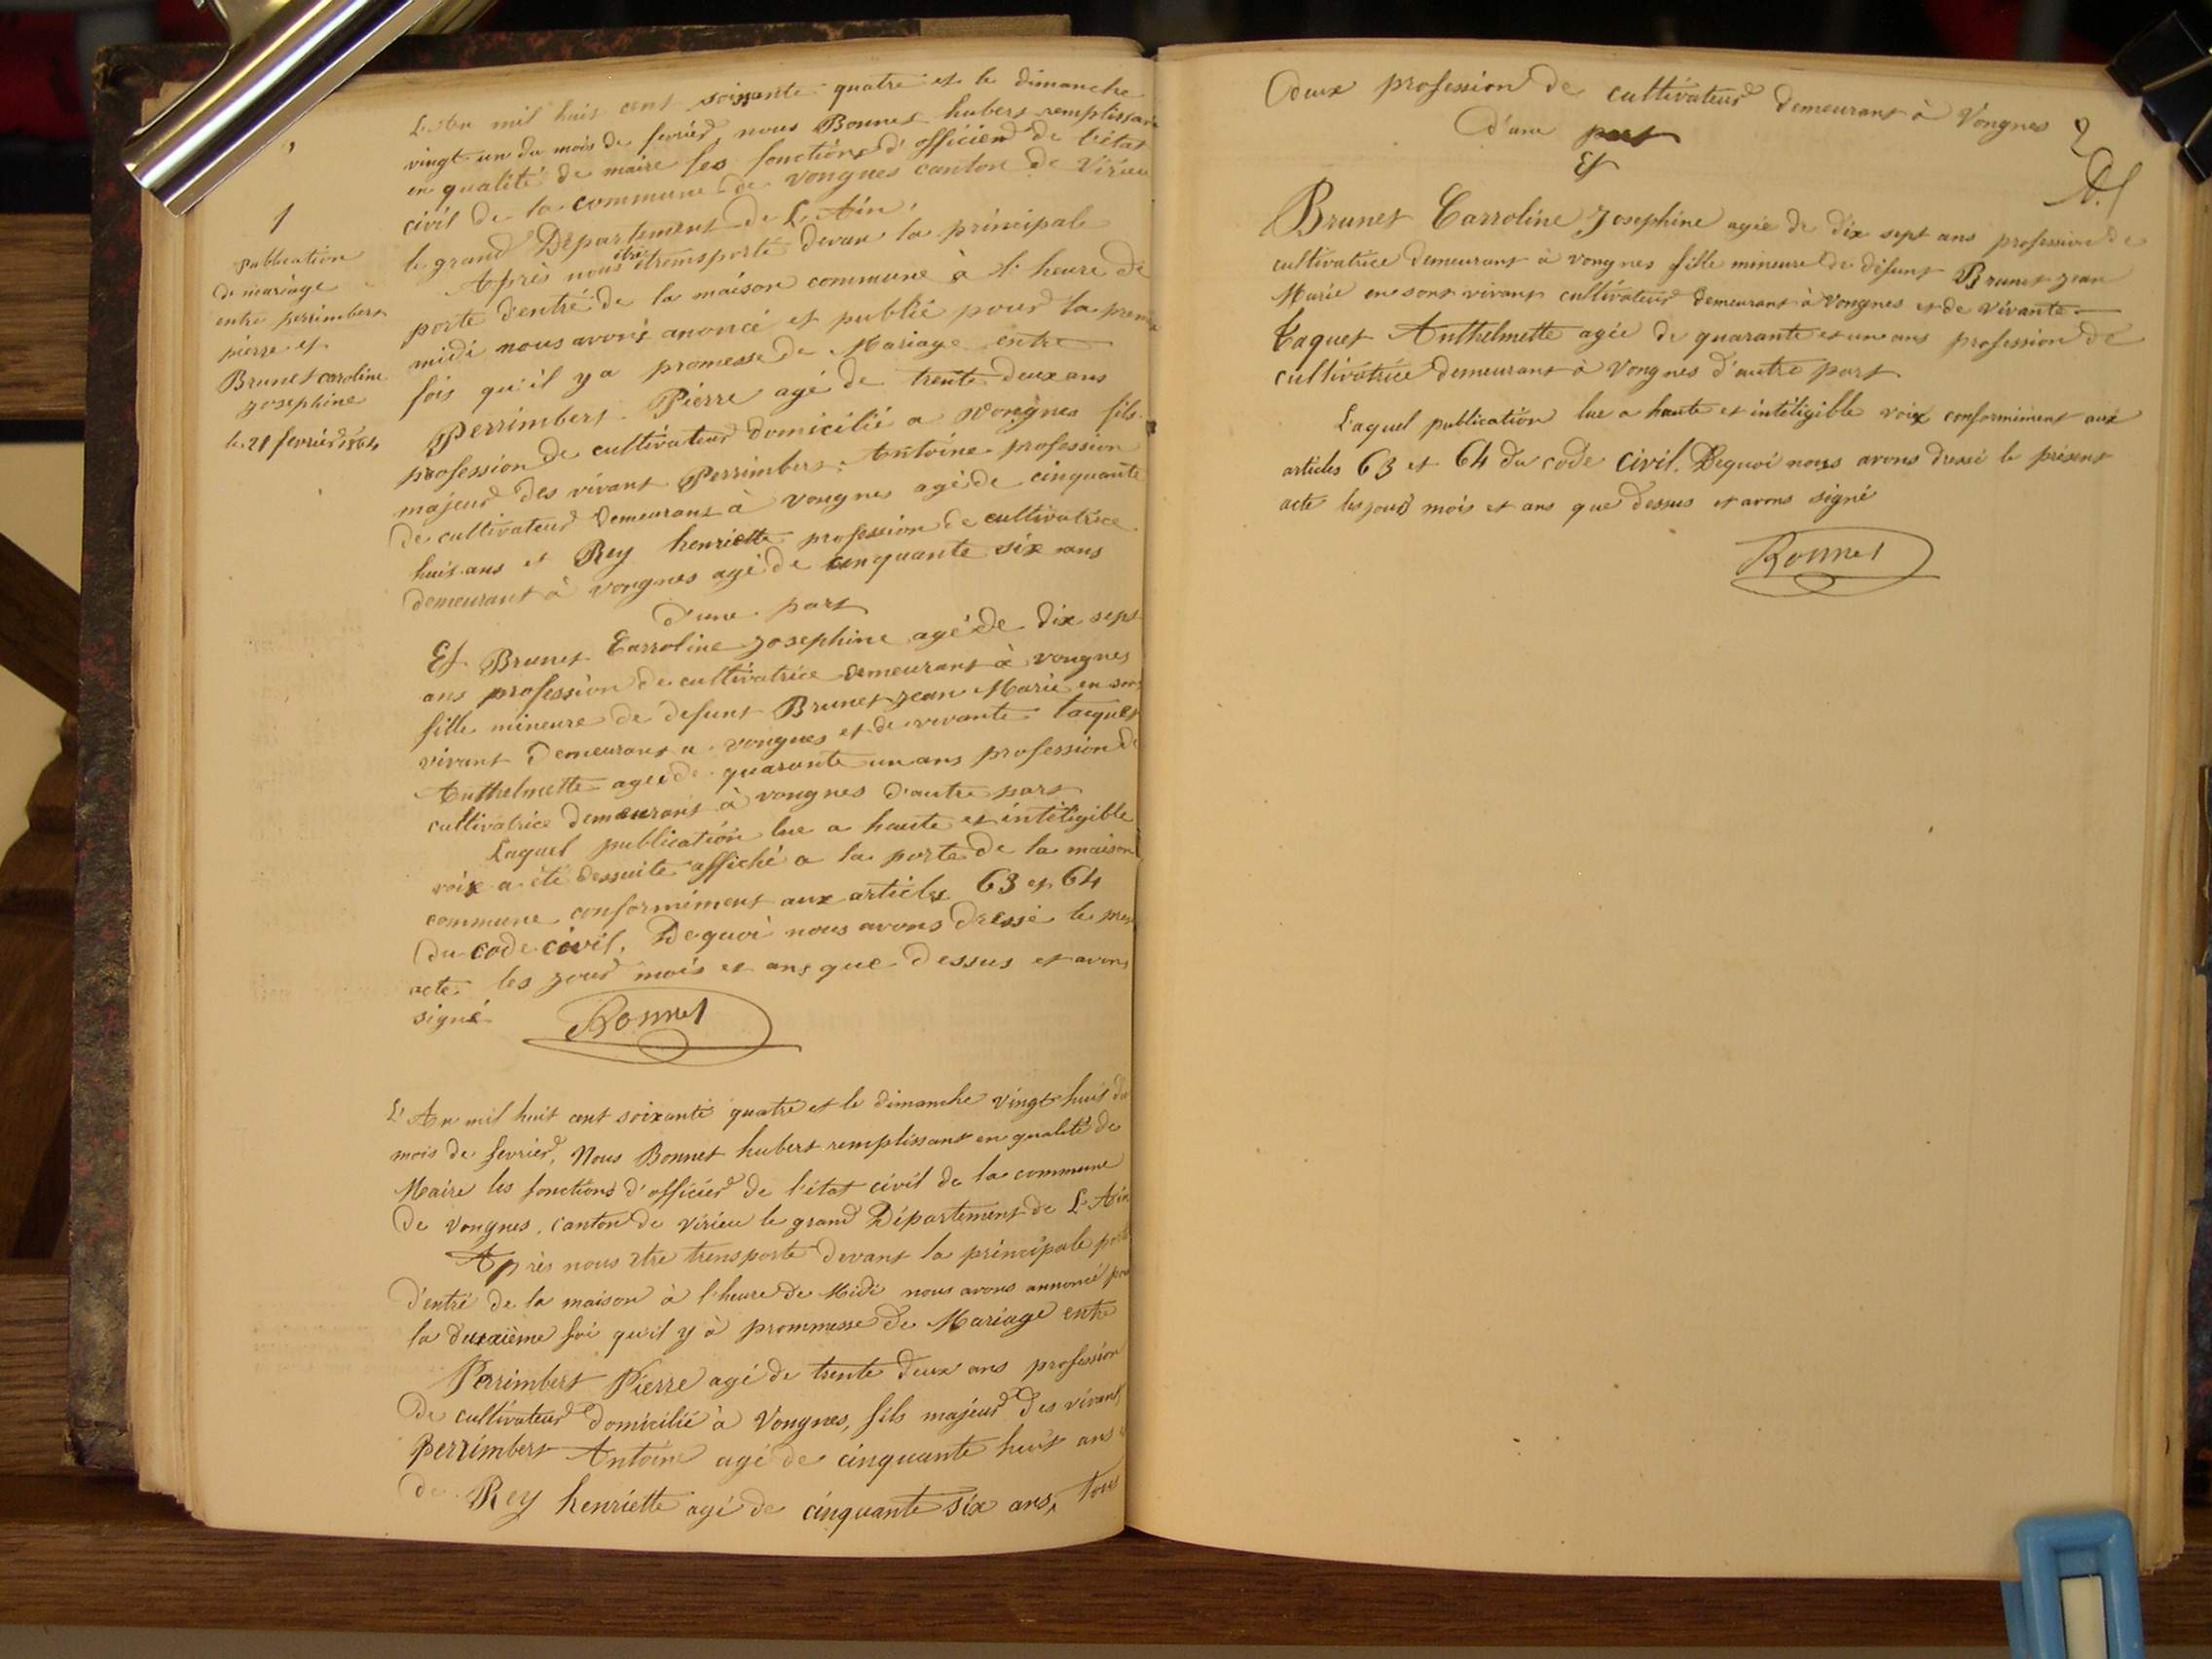 1
publication
de mariage
entre perrimbert
pierre et
Brunet caroline
josephine
le 21 fevrier 1864
L'An mil huit cent soixante quatre et le dimanche
vingt un du mois de fevrier nous Bonnet hubert remplissant
en qualité de maire les fonctions d'officier de l'état
civil de la commune de vongnes canton de Virieu
le grand Département de L'Ain,
Après nous être transporté devan la principale
porte d'entré de la maison commune à l'heure de
midi nous avons anoncé et publié pour la premie
fois qu'il y a promesse de Mariage entre
Perrimbert Pierre agé de trente deux ans
profession de cultivateur domicilié a Vongnes fils
majeur des vivant Perrimbert Antoine profession
de cultivateur demeurant à vongnes agé de cinquante
huit ans et Rey henriette profession de cultivatrice
demeurant à vongnes agé de cinquante six ans
d'une part
Et Brunet Carroline Josephine agé de dix sept
ans profession de cultivatrice demeurant à vongnes
fille mineure de defunt Brunet jean Marie en son
vivant demeurant a vongnes et de vivante Taquet
Anthelmette agée de quarante un ans profession de
cultivatrice demeurant à vongnes d'autre part
Laquel publication lue a haute et intéligible
voix a été dessuite affiché a la porte de la maison
commune conformiment aux articles 63 et 64
du code civil. Dequoi nous avons dressé le pres
acte les jour mois et ans que dessus et avons
signé Bonnet
L'An mil huit cent soixante quatre et le dimanche vingt huit du
mois de fevrier, Nous Bonnet hubert remplissant en qualité de
Maire les fonctions d'officier de l'état civil de la commune
de vongnes, canton de virieu le grand Département de L'Ain
Après nous etre transporte devant la principale porte
d'entré de la maison à l'heure de Midi nous avons annoncé pour
la deuxaième foi qu'il y à prommesse de Mariage entre
Perrimbert Pierre agé de trente deux ans profession
de cultivateur domicilié à Vongnes, fils majeur des vivant
Perrimbert Antoine agé de cinquante huit ans
de Rey henriette agé de cinquante six ans, tous
deux profession de cultivateur demeurant à Vongnes
d'une part
2
Et
Brunet Carroline Josephine agée de dix sept ans profession de
cultivatrice demeurant à vongnes fille mineure de difunt Brunet jean
Marie en sont vivant cultivateur demeurant à Vongnes et de vivante
Taquet Anthelmette agée de quarante et un ans profession de
cultivatrice demeurant à Vongnes d'autre part.
Laquel publication lue a haute et intéligible voix conformiment aux
articles 63 et 64 du code civil. Dequoi nous avons dressé le présent
acte les jour mois et ans que dessus et avons signé
Bonnet